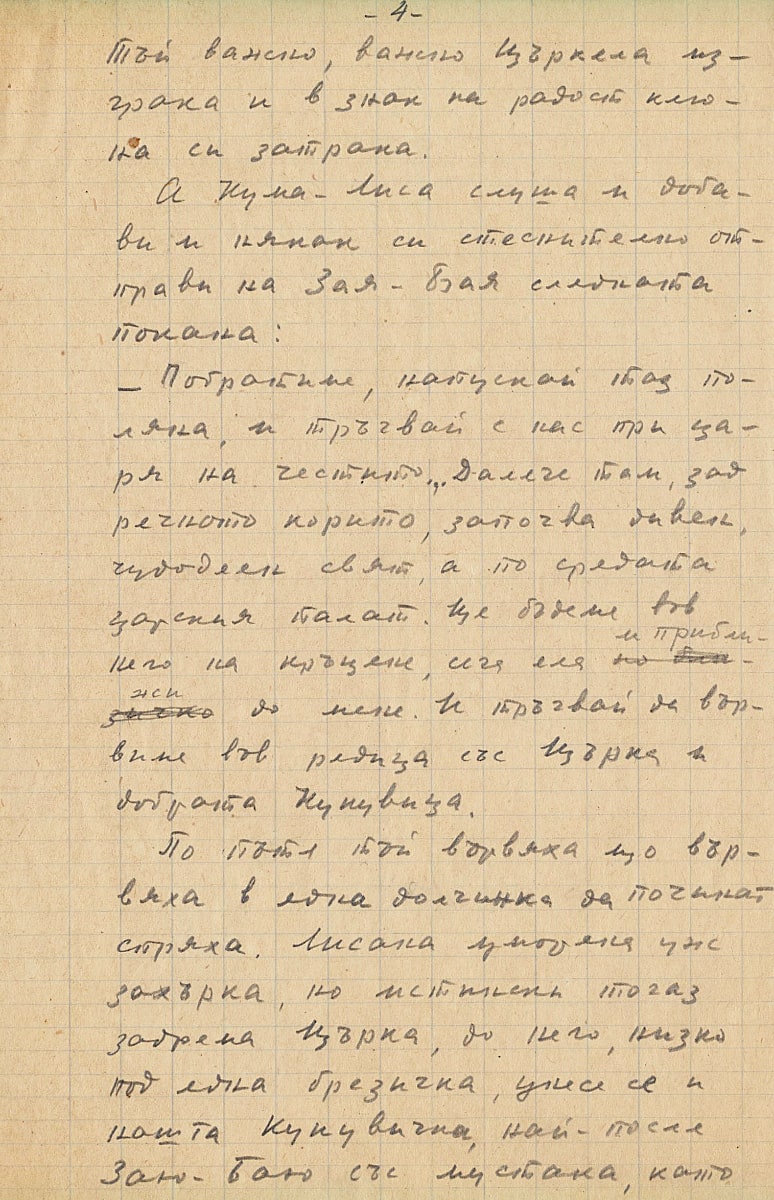 - 4 -
Тъй важно, важно Църкела из-
грака и в знак на радост клю-
на си затрака.
А Кума-Лиса слуша и доба-
ви и някак си стеснително от-
прави на Зая-Бая следната
покана:
– Побратиме, напускай таз по-
ляна, и тръгвай с нас при ца-
ря на честито... Далече там, зад
речното корито, започва дивен,
чудодеен свят, а по средата
царския палат. Ще бъдеме във
и прибли-
него на кръщене, сега ела по бли-
жи
зичко до мене. И тръгвай да вър-
виме във редица със Църка и
добрата Кукувица.
По пътя тъй вървяха що вър-
вяха в една долчинка да починат
стряха. Лисана уморена уж
захърка, но истински тогаз
задрема Църка, до него, низко
под една брезичка, унесе се и
нашта Кукувичка, най-после
Заю-Баю със мустака, като